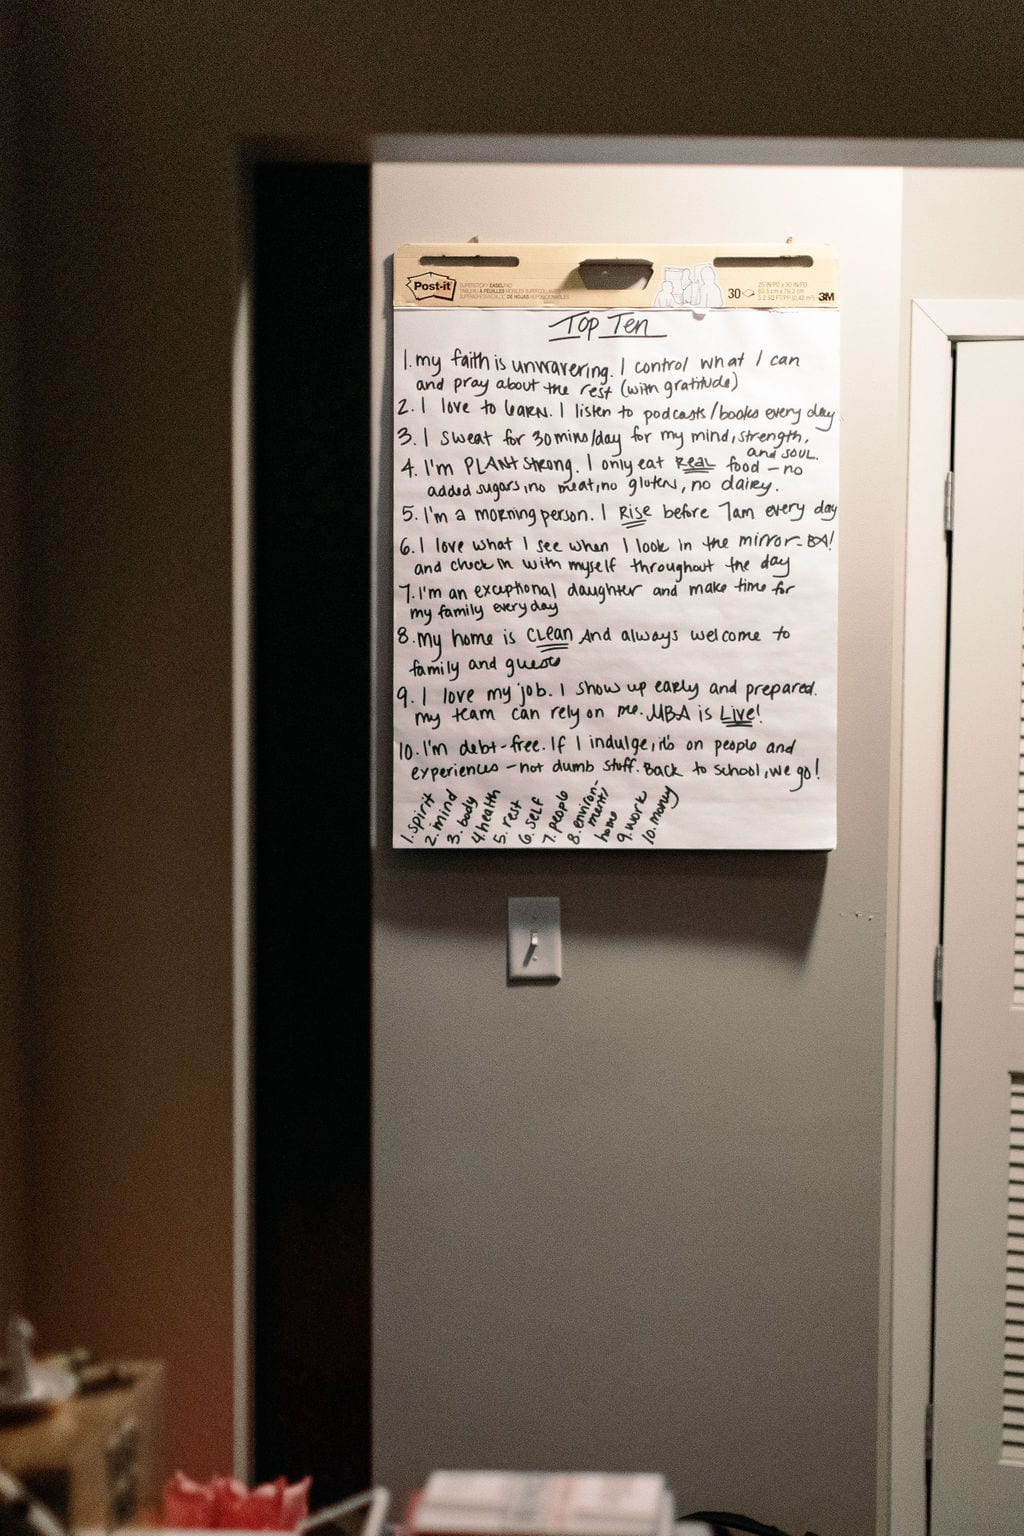 Post-it
SUPERSTICKY EASELPAD
30
25 IN/PO x 30 IN/PO
63.5 cm x 76.2 cm
3M
Top Ten
1. my faith is unwavering. I control what I can
and pray about the rest (with gratitude)
2. I love to learn. I listen to podcasts/books every day
3. I sweat for 30mins/day for my mind, strength,
and soul.
4. I'm PLANT strong. I only eat REAL food - no
added sugars, no meat, no gluten, no dairy.
5. I'm a morning person. I RISE before 7am every day
6. I love what I see when I look in the mirror - BA!
and check in with myself throughout the day
7. I'm an exceptional daughter and make time for
my family every day
8. My home is CLEAN And always welcome to
family and guests
9. I love my job. I show up early and prepared.
my team can rely on me. MBA is Live!
10. I'm debt-free. If I indulge, it's on people and
experiences - not dumb stuff. Back to school, we go!
1. spirit
2. mind
3. body
4. health
5. rest
6. self
7. people
8. environ-
ment/
home
9. work
10. money